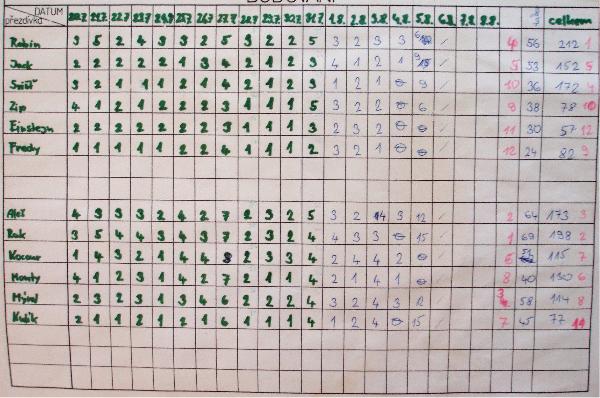 BODOVÁNÍ
DATUM 20.7. 21.7. 22.7. 23.7. 24.7. 25.7. 26.7. 27.7. 28.7. 29.7. 30.7. 31.7. 1.8. 2.8. 3.8. 4.8. 5.8. 6.8. 7.8. 8.8. celkem
přezdívka
Robin 3 5 2 4 3 3 2 5 3 2 2 5 3 2 3 3 4 56 212 1
Jack 2 2 2 2 2 1 3 4 2 1 2 3 4 1 2 1 15 5 53 152 5
3 2 1 1 1 2 1 4 2 1 2 3 1 2 1 9 10 36 172 4
Zip 4 1 2 1 2 2 2 3 1 1 1 5 3 2 2 6 9 38 78 10
Einstejn 2 2 2 2 2 2 2 3 1 1 1 3 2 3 2 11 30 57 12
Fredy 1 1 1 1 1 2 2 4 1 1 1 2 3 2 1 12 24 82 9
Aleš 4 3 3 3 2 4 2 7 2 3 2 5 3 2 14 3 12 2 64 173 3
Rak 3 5 4 4 3 4 3 7 2 3 2 4 4 3 3 15 1 69 198 2
Kocour 1 4 3 2 1 4 4 8 2 3 3 4 2 4 4 2 6 115 7
Monty 4 1 2 3 1 4 2 7 2 1 1 4 2 1 4 1 8 40 130 6
2 3 2 3 1 3 4 6 2 2 2 4 3 2 4 3 12 3 58 114 8
Kulík 2 1 1 2 1 2 1 6 1 1 1 4 1 2 4 15 7 45 77 11